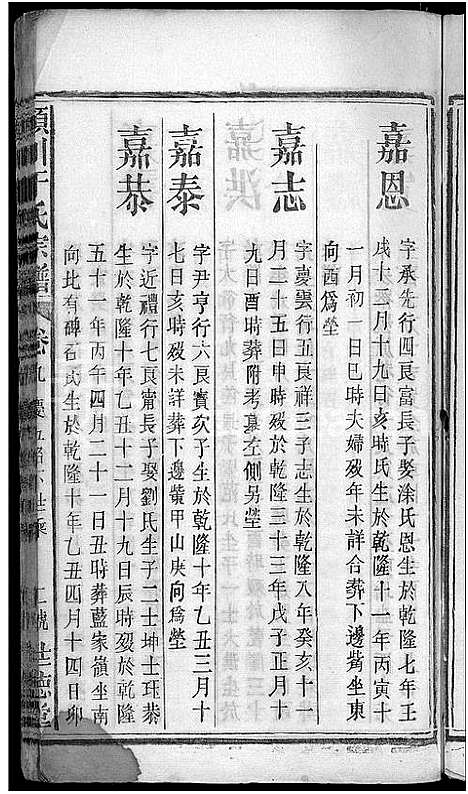 嘉恩
字承先行四良富長子娶涂氏恩生於乾隆七年壬
戌十二月十九日亥時氏生於乾隆十一年丙寅十
一月初一日巳時夫婦歿年未詳合葬下邊觜坐東
向酉爲塋
嘉志
字慶雲行五良祥三子志生於乾隆八年癸亥十一
月二十五日申時歿於乾隆三十三年戊子正月十
九日酉時葬附考墓左側另塋
嘉泰
字尹亨行六良賓次子生於乾隆十年乙丑三月十
七日亥時歿未詳葬下邊觜甲山庚向爲塋
嘉恭
字近禮行七良甯長子娶劉氏生子二士坤士珏恭
生於乾隆十年乙丑十二月十九日辰時歿於乾隆
五十一年丙午四月二十一日丑時葬藍家嶺坐南
向北有碑石氏生於乾隆十年乙丑四月十四日卯
川于氏宗譜
卷九
世德堂